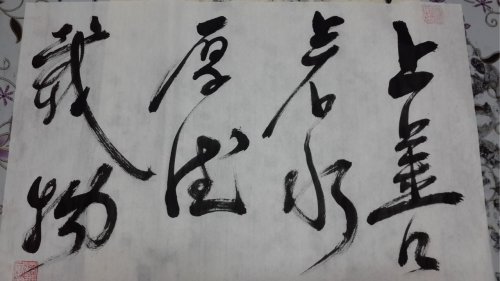 上善
若水
厚德
载物